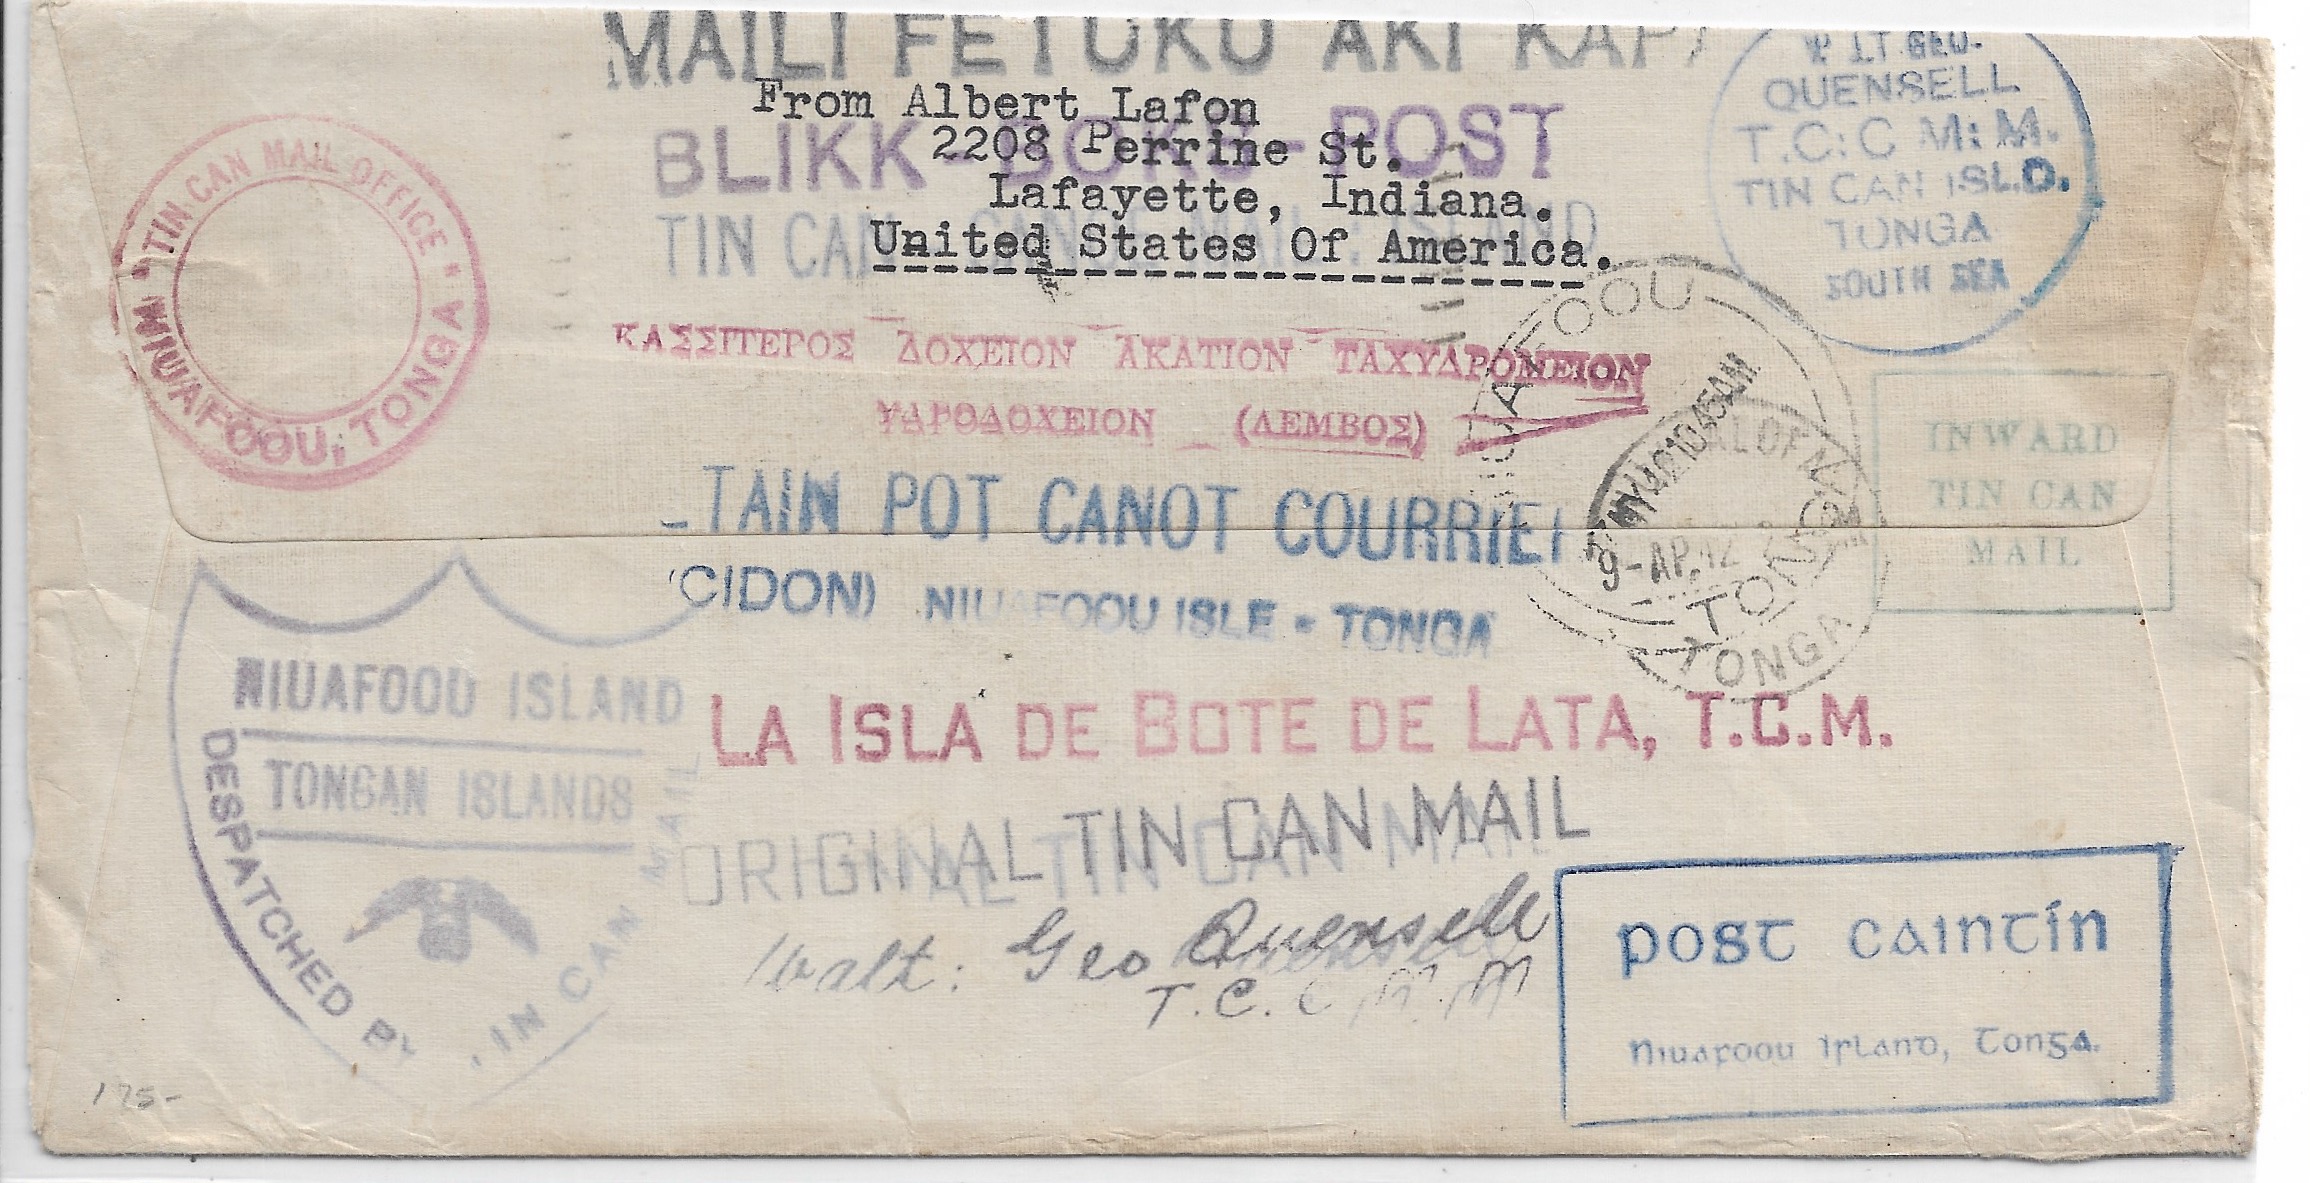 MAILI FETUKU AKI KAPA
From Albert Lafon
2208 Perrine St.
Lafayette, Indiana.
United States Of America.
BLIKK-BOKS-POST
TIN CAN CANOE MAIL ISLAND
WALT GEO-
QUENSELL
T.C:C M:M.
TIN CAN ISLD.
TONGA
SOUTH SEA
"TIN CAN MAIL OFFICE"
NIUAFOOU, TONGA
ΚΑΣΣΙΤΕΡΟΣ ΔΟΧΕΙΟΝ ΑΚΑΤΙΟΝ ΤΑΧΥΔΡΟΜΕΙΟΝ
ΥΔΡΟΔΟΧΕΙΟΝ (ΛΕΜΒΟΣ)
NIUAFOOU
9-AP.42
TONGA
TONGA
INWARD
TIN CAN
MAIL
TAIN POT CANOT COURRIER
(CIDON) NIUAFOOU ISLE - TONGA
NIUAFOOU ISLAND
TONGAN ISLANDS
DESPATCHED BY TIN CAN MAIL
LA ISLA DE BOTE DE LATA, T.C.M.
ORIGINAL TIN CAN MAIL
Walt: Geo Quensell
T.C.C M.M
post caintín
Niuafoou Island, Tonga.
175-